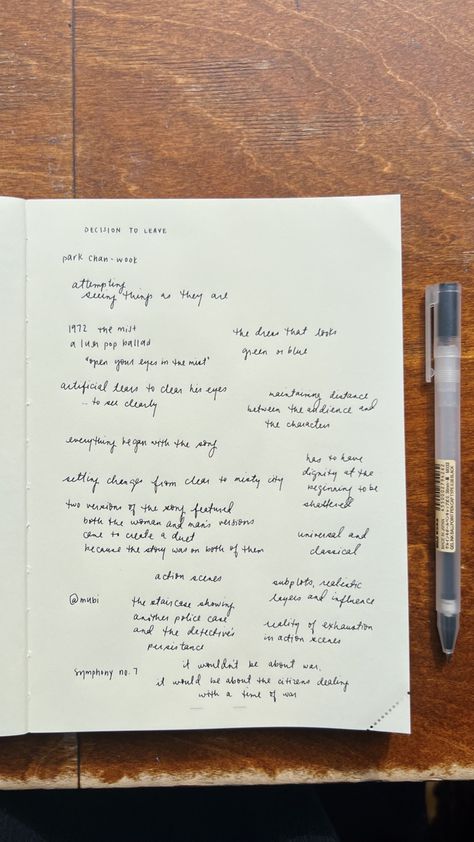 DECISION TO LEAVE
park chan-wook
attempting
seeing things as they are
1972 the mist
a luv pop ballad
"open your eyes in the mist"
the dress that looks
green or blue
artificial tears to clear his eyes
... to see clearly
maintaining distance
between the audience and
the characters
everything began with the song
has to have
dignity at the
beginning to be
shattered
setting changes from clear to misty city
two versions of the song featured
both the woman and man's versions
came to create a duet
because the story was on both of them
universal and
classical
action scenes
subplots, realistic
layers and influence
@mubi
the staircase showing
another police case
and the detective's
persistance
reality of exhaustion
in action scenes
symphony no. 7
it wouldn't be about war,
it would be about the citizens dealing
with a time of war
MADE IN JAPAN